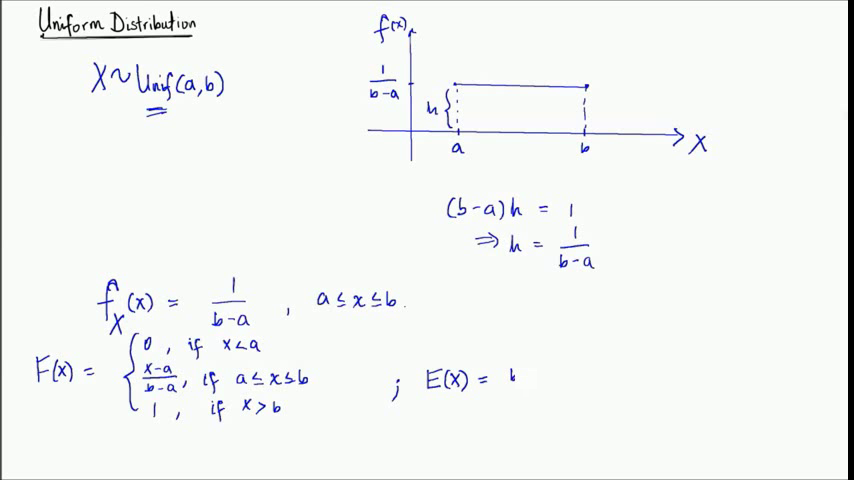 Uniform Distribution
X ~ Unif(a,b)
f(x)
1/(b-a)
h
a
b
X
(b-a)h = 1
⇒ h = 1/(b-a)
f_X(x) = 1/(b-a) , a ≤ x ≤ b.
F(x) = { 0 , if x < a
(x-a)/(b-a) , if a ≤ x ≤ b
1 , if x > b
; E(X) =